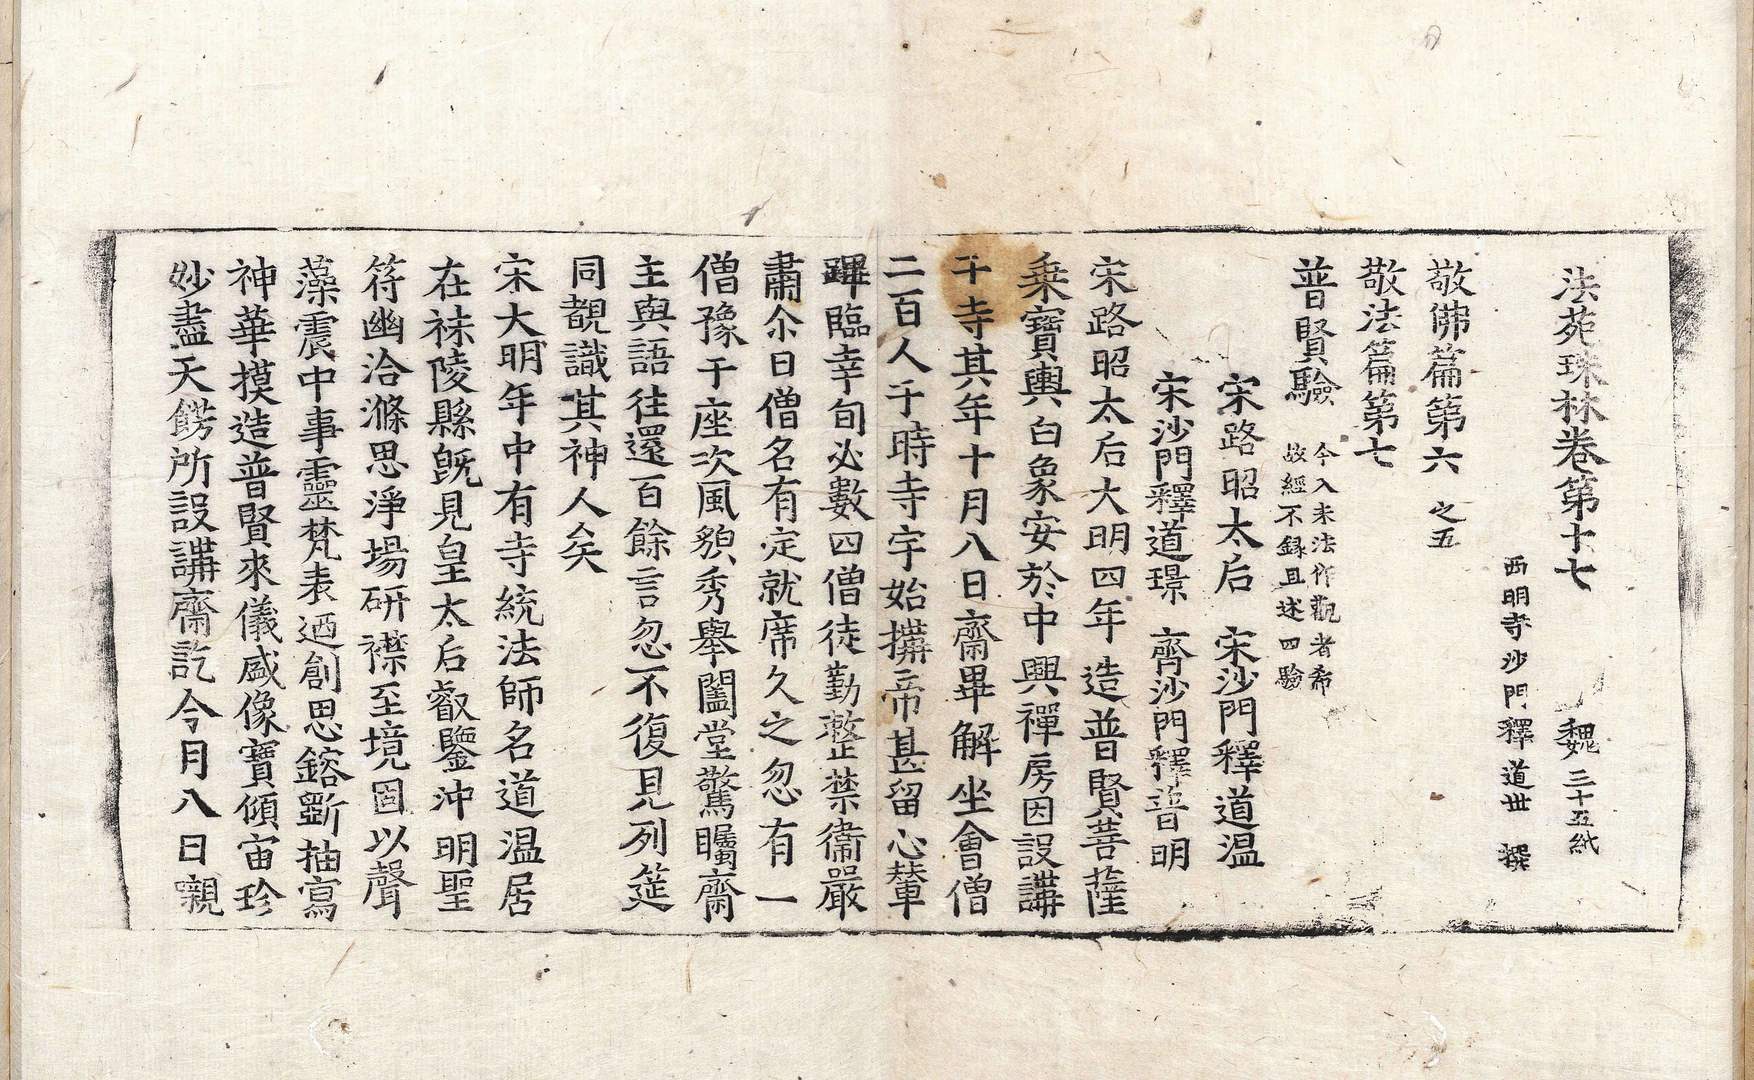 法苑珠林卷第十七 魏 三十五紙
西明寺沙門釋道世 撰
敬佛篇第六 之五
敬法篇第七
普賢驗 今入末法作觀者希
故經不錄且述四驗
宋路昭太后 宋沙門釋道温
宋沙門釋道璟 齊沙門釋普明
宋路昭太后大明四年造普賢菩薩
乗寶輿白象安於中興禪房因設講
于寺其年十月八日齋畢解坐會僧
二百人于時寺宇始搆帝甚留心輦
蹕臨幸旬必數四僧徒勤整禁衞嚴
肅尒日僧名有定就席久之忽有一
僧豫于座次風貌秀舉闔堂驚矚齋
主與語往還百餘言忽不復見列筵
同覩識其神人矣
宋大明年中有寺統法師名道温居
在秣陵縣旣見皇太后叡鑒沖明聖
符幽洽滌思淨場研襟至境固以聲
藻震中事靈梵表迺創思鎔斲抽寫
神華摸造普賢來儀盛像寶傾宙珍
妙盡天餝所設講齋訖今月八日嚫